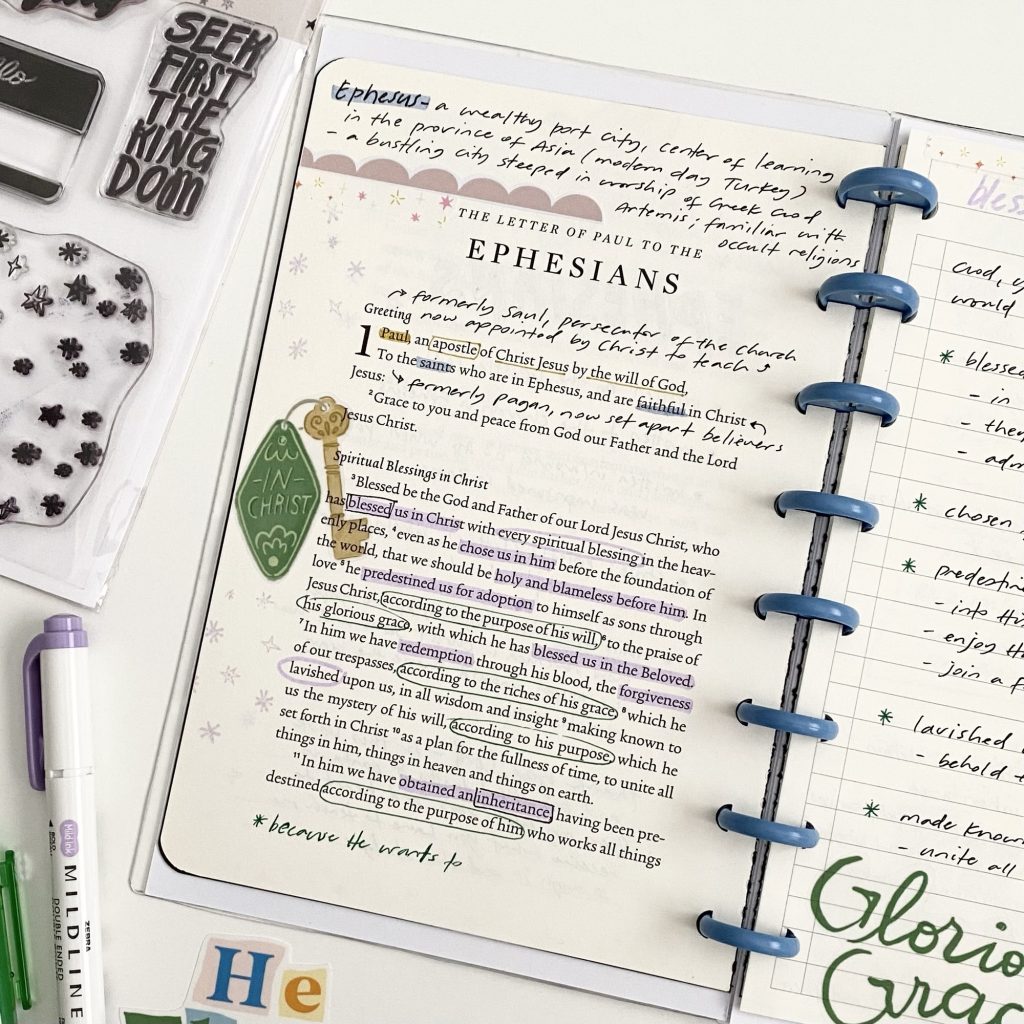 SEEK
FIRST
THE
KING
DOM
Ephesus- a wealthy port city, center of learning
in the province of Asia (modern day Turkey)
- a bustling city steeped in worship of Greek God
Artemis; familiar with
occult religions
THE LETTER OF PAUL TO THE
EPHESIANS
formerly Saul, persecutor of the church
Greeting now appointed by Christ to teach
1 Paul, an apostle of Christ Jesus by the will of God,
To the saints who are in Ephesus, and are faithful in Christ
Jesus: formerly pagan, now set apart believers
2Grace to you and peace from God our Father and the Lord
Jesus Christ.
-IN-
CHRIST
Spiritual Blessings in Christ
3Blessed be the God and Father of our Lord Jesus Christ, who
has blessed us in Christ with every spiritual blessing in the heav-
enly places, 4even as he chose us in him before the foundation of
the world, that we should be holy and blameless before him. In
love 5he predestined us for adoption to himself as sons through
Jesus Christ, according to the purpose of his will, 6to the praise of
his glorious grace, with which he has blessed us in the Beloved.
7In him we have redemption through his blood, the forgiveness
of our trespasses, according to the riches of his grace, 8which he
lavished upon us, in all wisdom and insight 9making known to
us the mystery of his will, according to his purpose, which he
set forth in Christ 10as a plan for the fullness of time, to unite all
things in him, things in heaven and things on earth.
11In him we have obtained an inheritance, having been pre-
destined according to the purpose of him who works all things
*because He wants to
God,
would
* blessed
- in
- then
* chosen
- into
- enjoy
- join a
lavished
- behold
* made known
- unite all
Mildink
MILDLINE
ZEBRA
DOUBLE ENDED
He